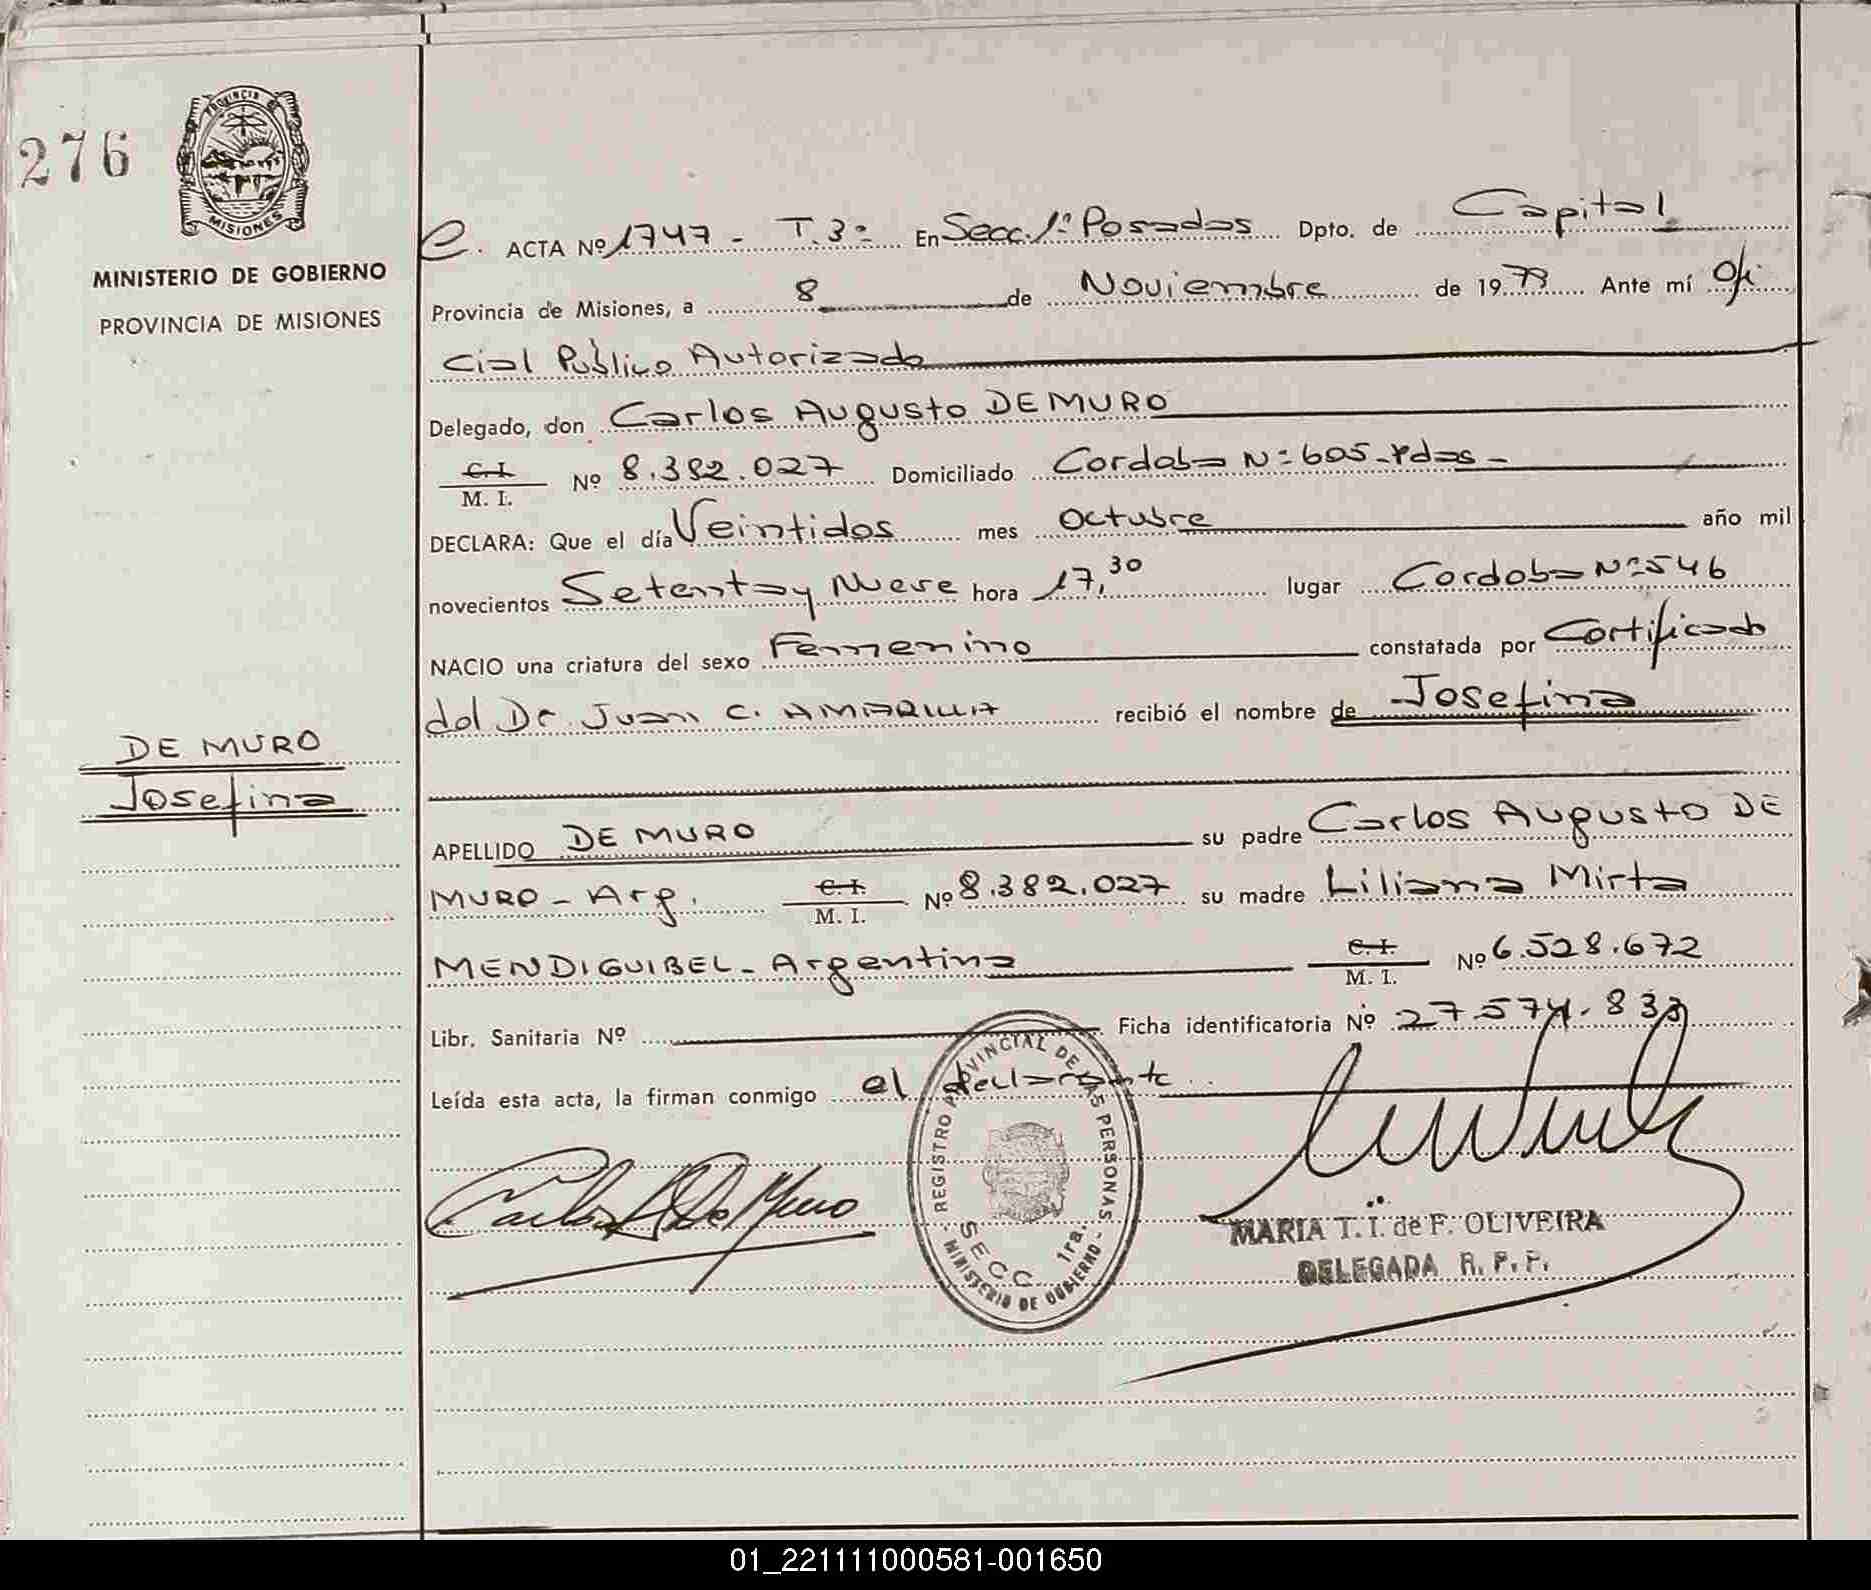 276
PROVINCIA DE
MISIONES
MINISTERIO DE GOBIERNO
PROVINCIA DE MISIONES
DE MURO
Josefina
e. ACTA Nº 1747 - T.3º En Secc. 1ª Posadas Dpto. de Capital
Provincia de Misiones, a 8 de Noviembre de 1979 Ante mí Ofi
cial Público Autorizado
Delegado, don Carlos Augusto DE MURO
C. I.
M. I. Nº 8.382.027 Domiciliado Cordoba Nº 605 - Pdas -
DECLARA: Que el día Veintidos mes octubre año mil
novecientos Setenta y Nueve hora 17,30 lugar Cordoba Nº 546
NACIO una criatura del sexo Femenino constatada por Certificado
del Dr. Juan C. AMARILLA recibió el nombre de Josefina
APELLIDO DE MURO su padre Carlos Augusto DE
MURO - Arg. C. I.
M. I. Nº 8.382.027 su madre Liliana Mirta
MENDIGUIBEL - Argentina C. I.
M. I. Nº 6.528.672
Libr. Sanitaria Nº Ficha identificatoria Nº 27.574.833
Leída esta acta, la firman conmigo el declarante
Carlos A De Muro
REGISTRO PROVINCIAL DE LAS PERSONAS
SECC 1ra.
- MINISTERIO DE GOBIERNO -
MARIA T. I. de F. OLIVEIRA
DELEGADA R. P. P.
01_221111000581-001650